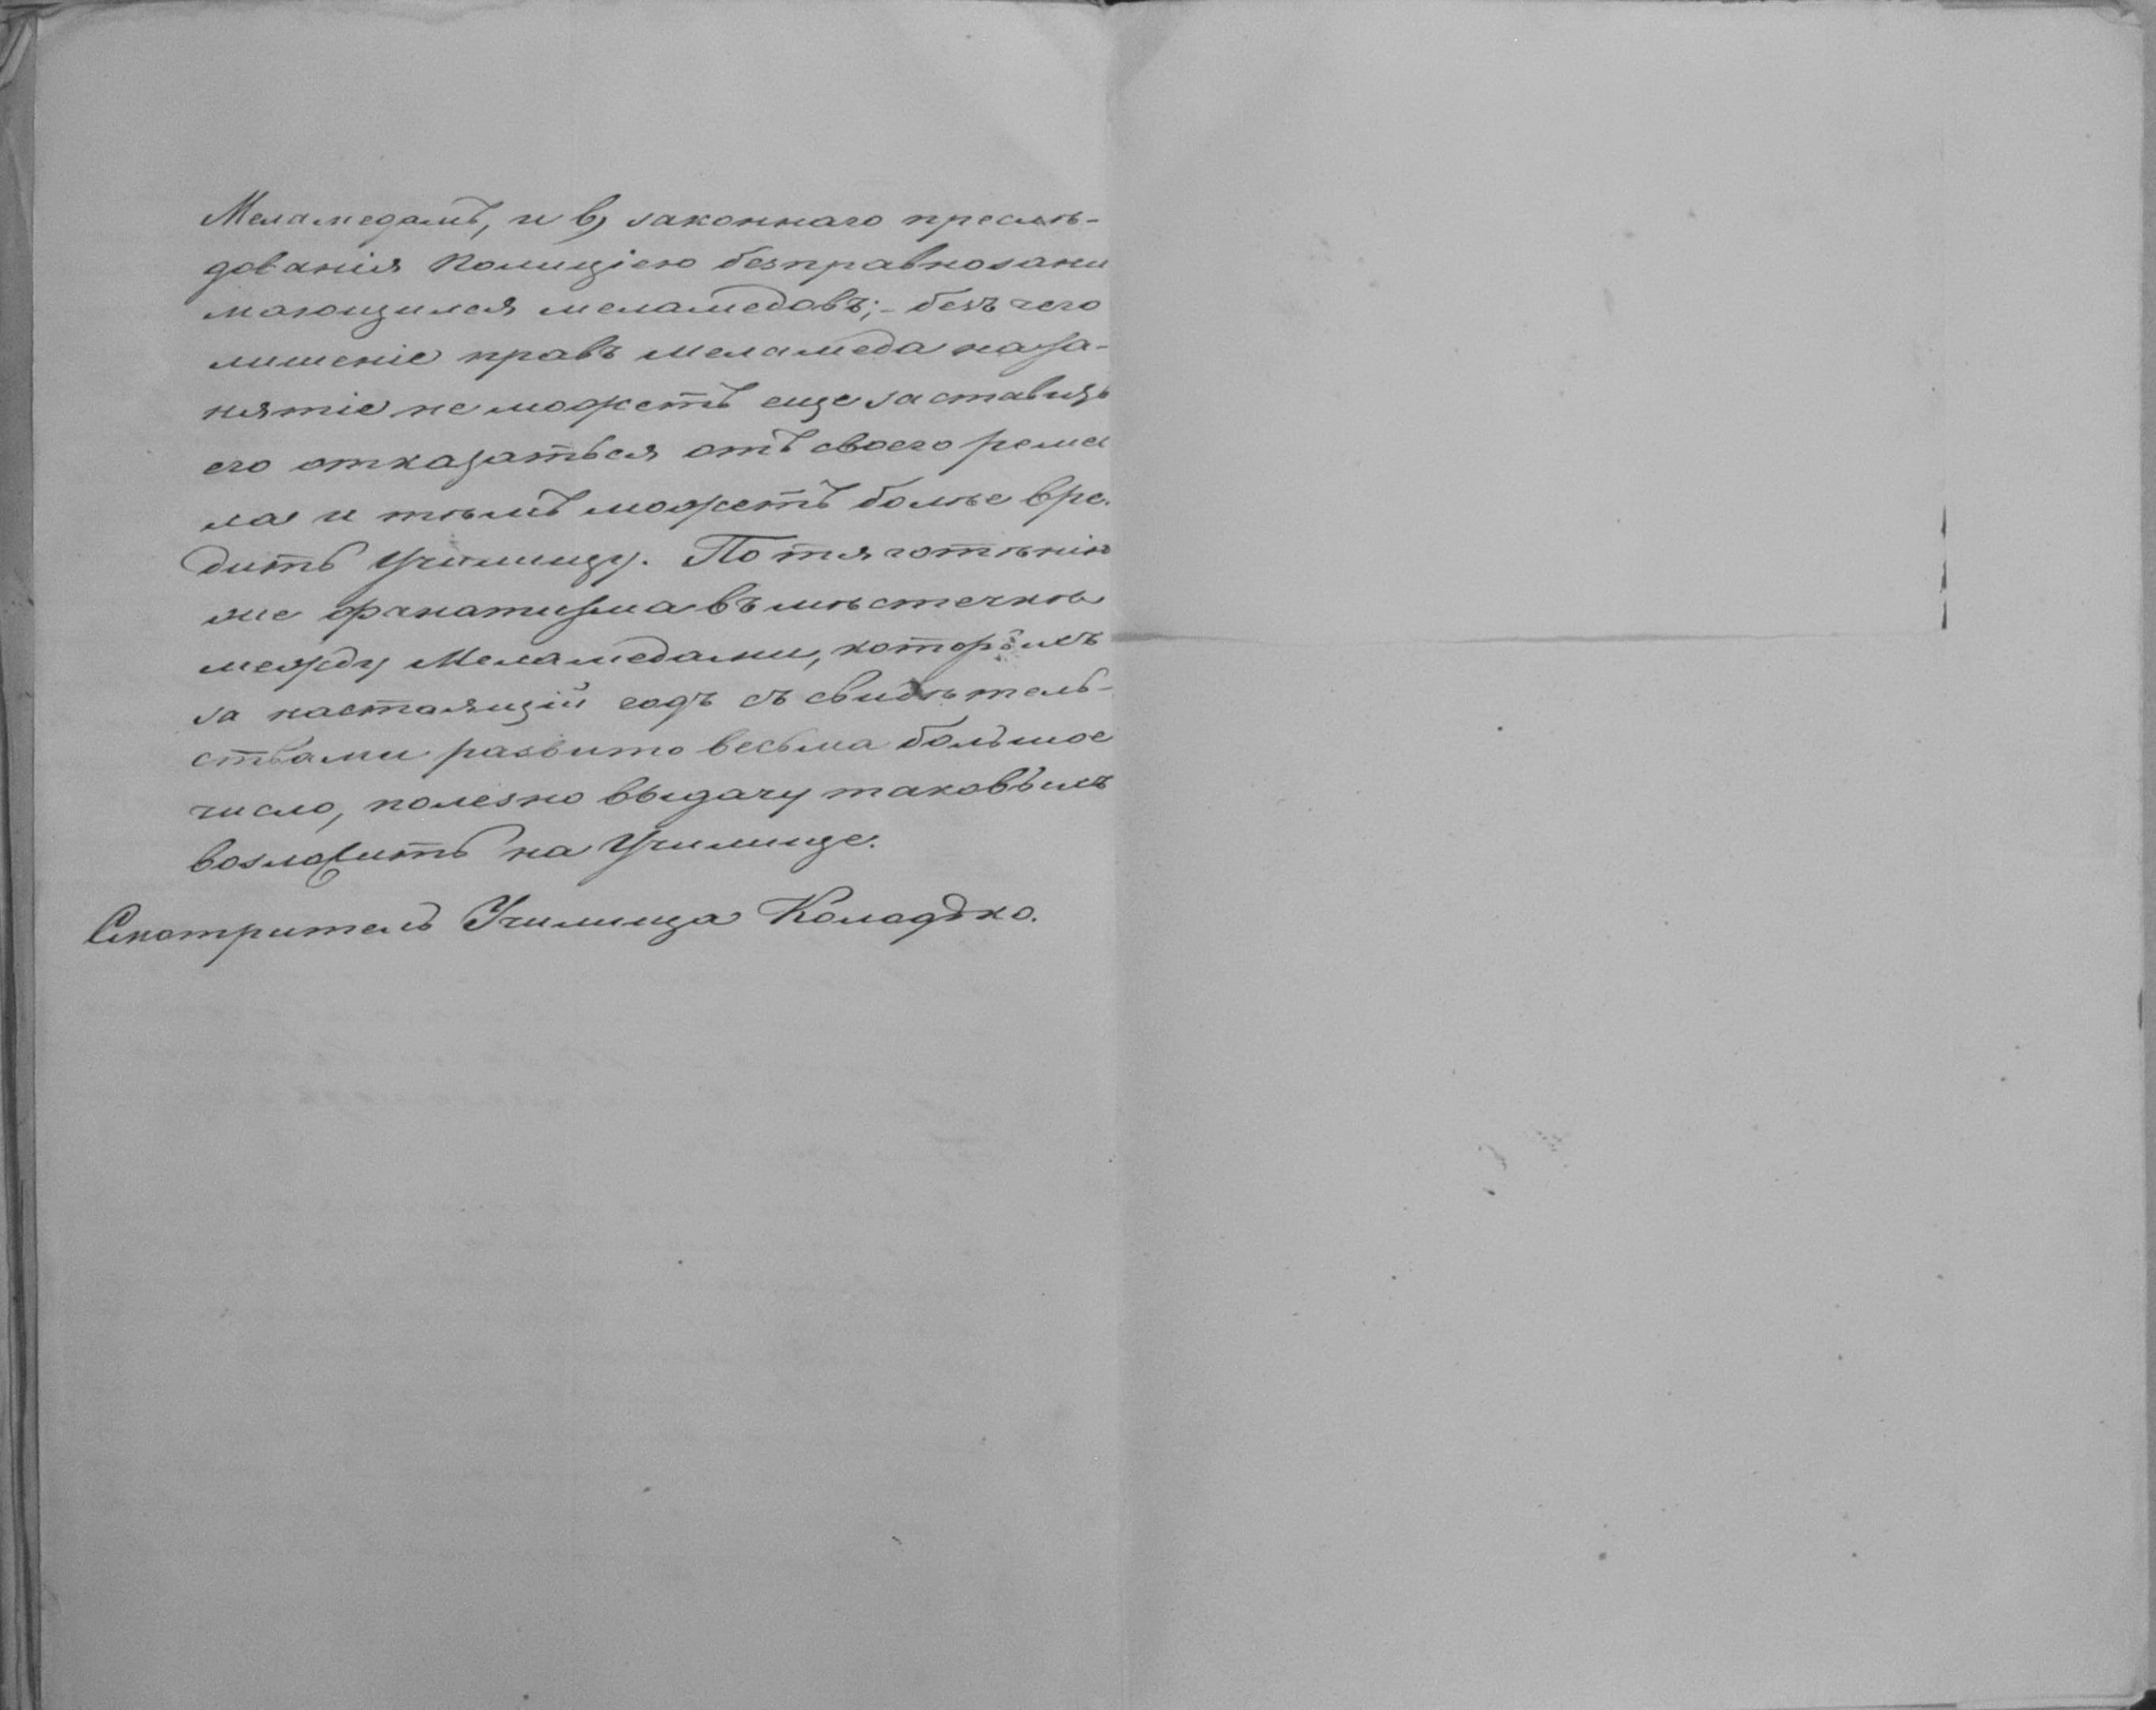 Меламедамъ, и в) законнаго преслѣ-
дованія Полиціею безправнозани
мающихся меламедовъ;- безъ чего
лишеніе правъ меламеда на за-
нятіе не можетъ еще заставить
его отказаться отъ своего реме
ла и тѣмъ можетъ болѣе вре-
дить Училищу. По тяготѣнію
же фанатизма въ мѣстечкѣ
между Меламедами, которыхъ
за настаящій годъ съ свидѣтель-
ствами развито весьма большое
число, полезно выдачу таковыхъ
возложить на Училище.
Смотритель Училища